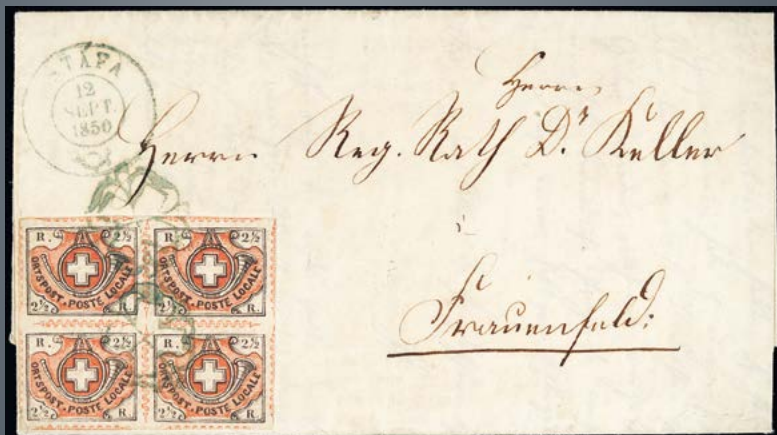 STÄFA
12
SEPT.
1850
Herrn
Herrn Reg. Rath Dr. Keller
Frauenfeld:
R. 2½
ORTSPOST. POSTE LOCALE
2½ R.
R. 2½
ORTSPOST. POSTE LOCALE
2½ R.
R. 2½
ORTSPOST. POSTE LOCALE
2½ R.
R. 2½
ORTSPOST. POSTE LOCALE
2½ R.